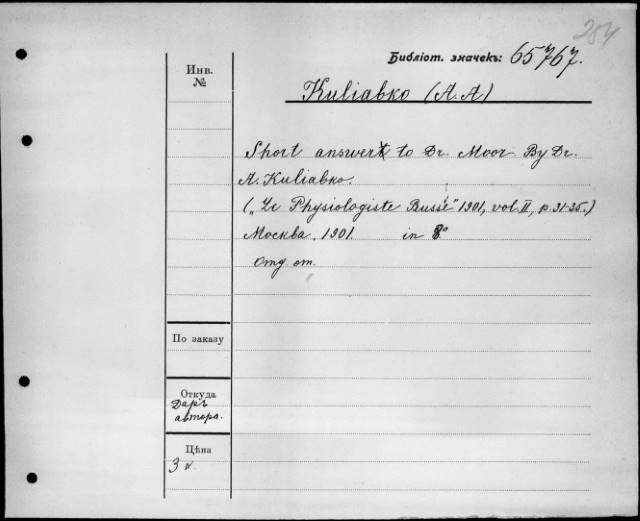 284
Библіот. значекъ: 65767.
Инв.
№
Kuliabko (A. A)
Short answer to Dr. Moor By Dr.
A. Kuliabko.
(„Le Physiologiste Russe" 1901, vol. II, p. 31-35.)
Москва. 1901. in 8°
Отд. от.
По заказу
Откуда
Даръ
автора.
Цѣна
3